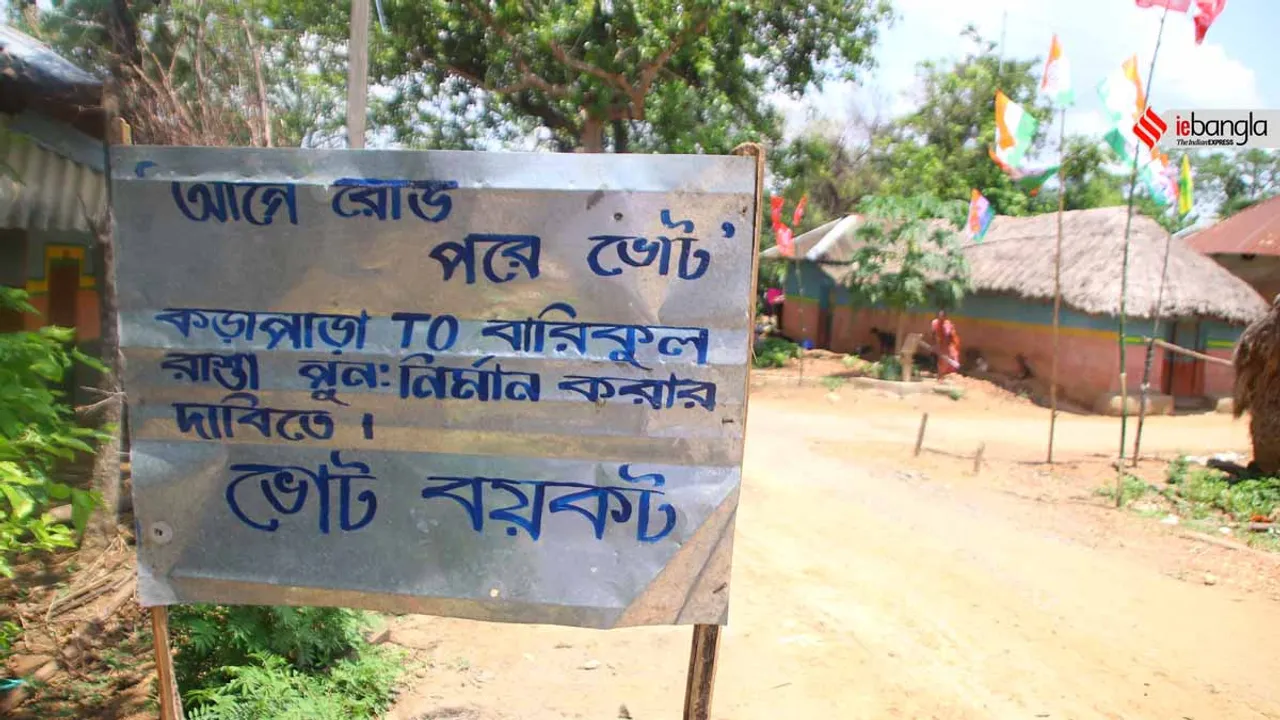 'আগে রোড
পরে ভোট'
কড়াপাড়া TO বারিকুল
রাস্তা পুন: নির্মান করার
দাবিতে।
ভোট বয়কট
iebangla
The Indian EXPRESS